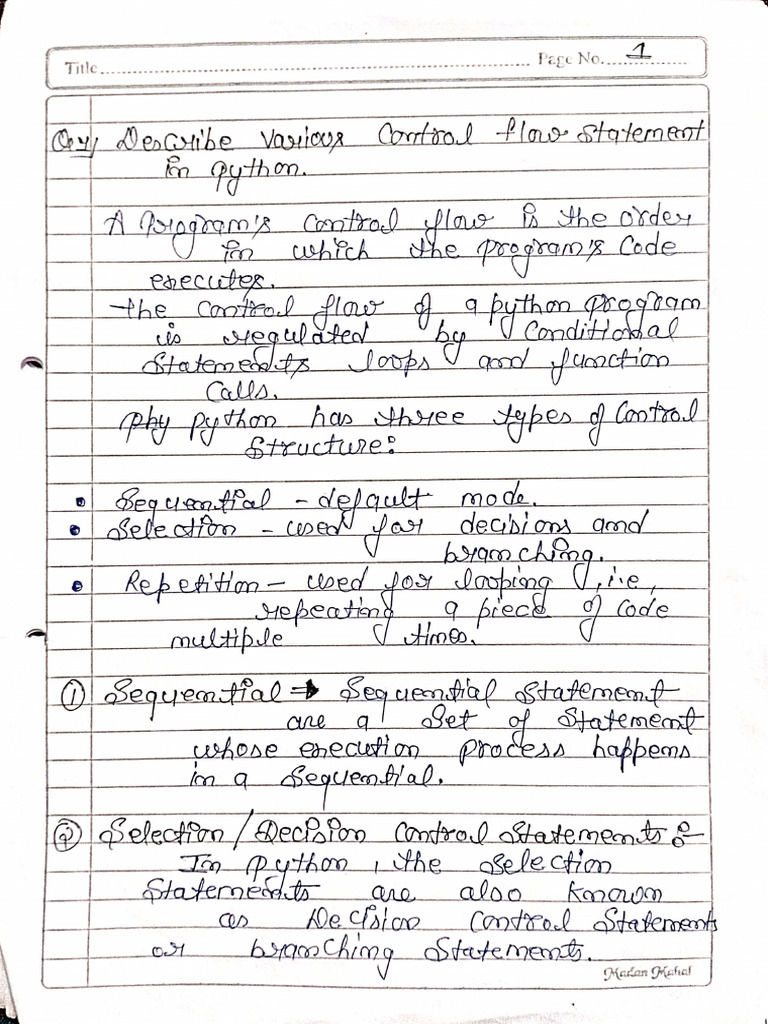 Title........ Page No. 1
Describe Various Control flow Statement
in python.
A Program's Control flow is the order
in which the program's Code
executes.
the Control flow of a python program
is regulated by Conditional
Statements loops and function
Calls.
Phy python has three types of Control
Structure:
• Sequential - default mode.
• Selection - used for decisions and
branching.
• Repetition - used for looping, i.e,
repeating a piece of Code
multiple times.
① Sequential → Sequential Statement
are a Set of Statement
whose execution process happens
in a Sequential.
② Selection/Decision Control Statements :-
In python, the Selection
Statements are also known
as Decision Control Statements
or branching Statements.
Madan Mahal